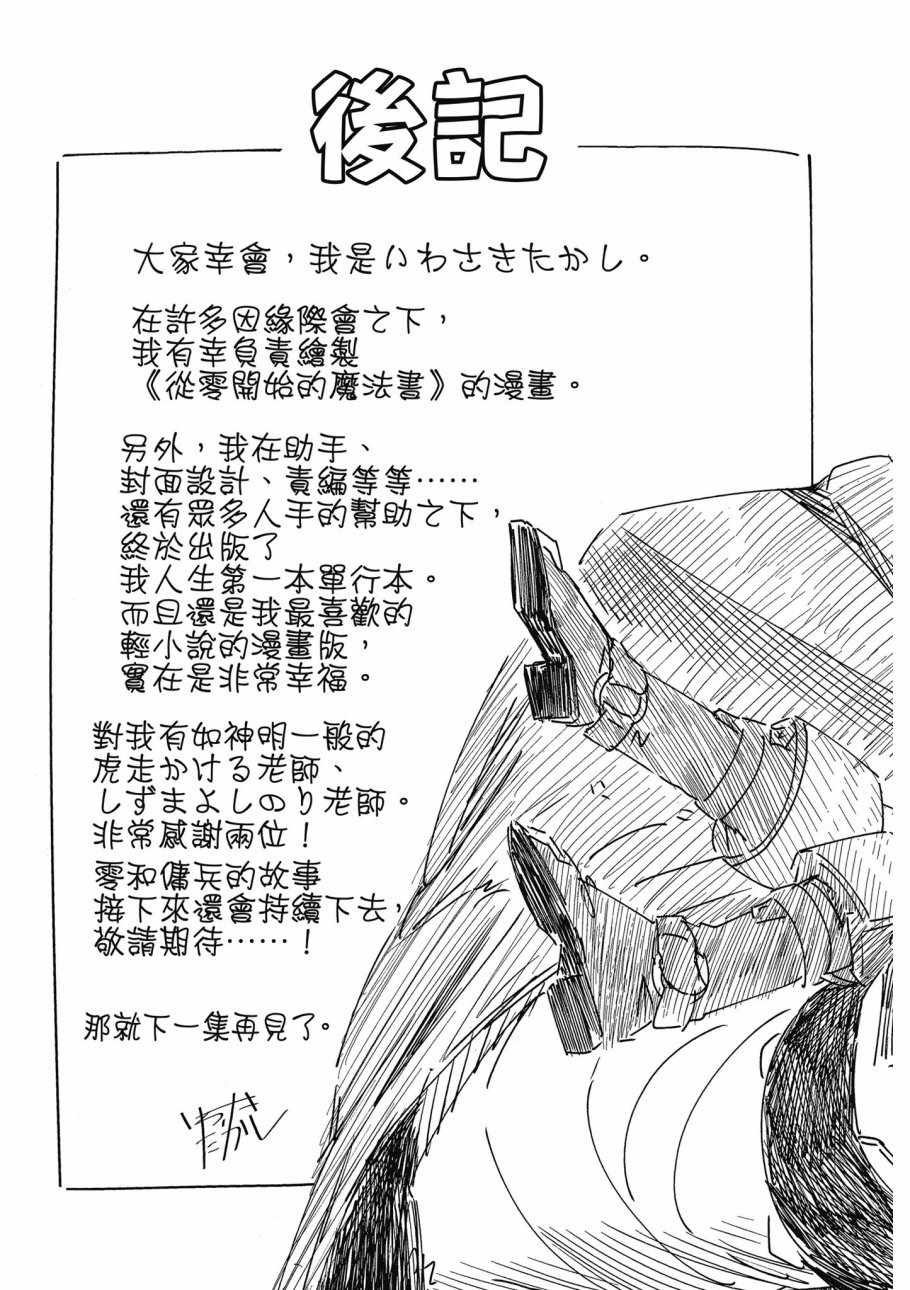 後記
大家幸會，我是いわさきたかし。
在許多因緣際會之下，
我有幸負責繪製
《從零開始的魔法書》的漫畫。
另外，我在助手、
封面設計、責編等等……
還有眾多人手的幫助之下，
終於出版了
我人生第一本單行本。
而且還是我最喜歡的
輕小說的漫畫版，
實在是非常幸福。
對我有如神明一般的
虎走かける老師、
しずまよしのり老師。
非常感謝兩位！
零和傭兵的故事
接下來還會持續下去，
敬請期待……！
那就下一集再見了。